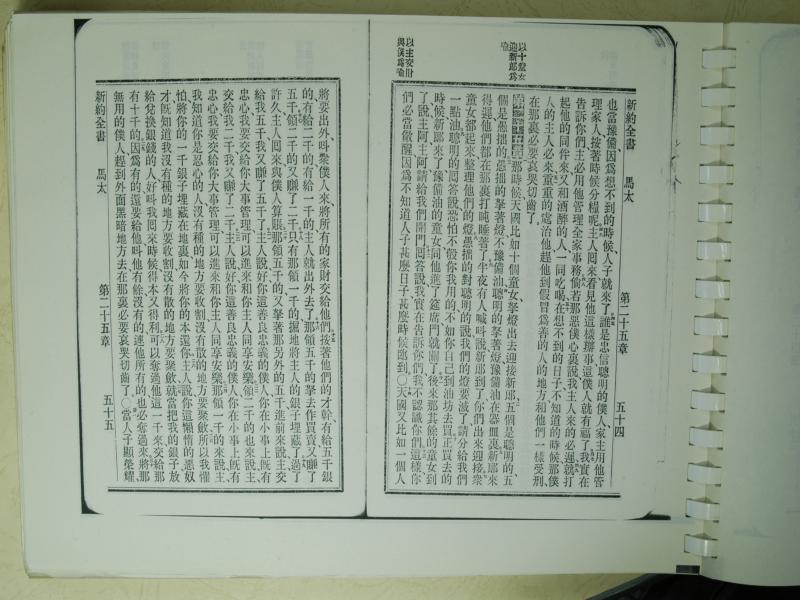 新約全書 馬太 第二十五章 五十四
也當豫備因爲想不到的時候人子就來了誰是忠信聰明的僕人家主用他管
理家人按著時候分糧呢主人囘來看見他這樣辦事這僕人就有福了我實在
告訴你們主必用他管理全家事務倘若那惡僕心裏說我主人來的必遲就打
起他的同伴來又和酒醉的人一同吃喝在想不到的日子不知道的時候那僕
人的主人必來重重的處治他趕他到假冒爲善的人的地方和他們一樣受刑
在那裏必要哀哭切齒了
以十童女
迎新郎爲
喻
那時候天國比如十個童女拏燈出去迎接新郎五個是聰明的五
個是愚拙的愚拙的拏著燈不豫備油聰明的拏著燈豫備油在器皿裏新郎來
得遲他們都在那裏打盹睡著了半夜有人喊叫說新郎到了你們出來迎接衆
童女都起來整理他們的燈愚拙的對聰明的說我們的燈要滅了請分給我們
一點油聰明的囘答說恐怕不彀你我用的不如你自己到油坊去買正買去的
時候新郎來了豫備油的童女同他進了筵席門就關了後來那其餘的童女到
了說主阿主阿請給我們開門囘答說我實在告訴你們我不認識你們這樣你
們必當儆醒因爲不知道人子甚麼日子甚麼時候臨到○天國又比如一個人
以主交財
與僕爲喻
將要出外叫衆僕人來將所有的家財交給他們按著他們的才幹有給五千銀
的有給二千的有給一千的主人就出外去了那領五千的拏去作買賣又賺了
五千領二千的又賺了二千只有那領一千的掘地將主人的銀子埋藏了過了
許久主人囘來與僕人算賬那領五千的又拏著那另外的五千進前來說主交
給我五千我又賺了五千了主人說好你這善良忠義的僕人你在小事上旣有
忠心我要交給你大事管理可以進來和你主人同享安樂領二千的也來說主
交給我二千我又賺了二千主人說好你這善良忠義的僕人你在小事上旣有
忠心我要交給你大事管理可以進來和你主人同享安樂那領一千的來說主
我知道你是忍心的人沒有種的地方要收割沒有散的地方要聚斂所以我懼
怕將你的一千銀子埋藏在地裏如今將你的本還你主人說你這懶惰的惡奴
才旣知道我沒有種的地方要收割沒有散的地方要聚斂就當把我的銀子放
給兌換銀錢的人好叫我囘來時候得本又得利可以奪過他這一千來交給那
有十千的因爲有的還要給他叫他有餘沒有的連他所有的也必奪過來將那
無用的僕人趕到外面黑暗地方去在那裏必要哀哭切齒了○當人子顯榮耀
新約全書 馬太 第二十五章 五十五